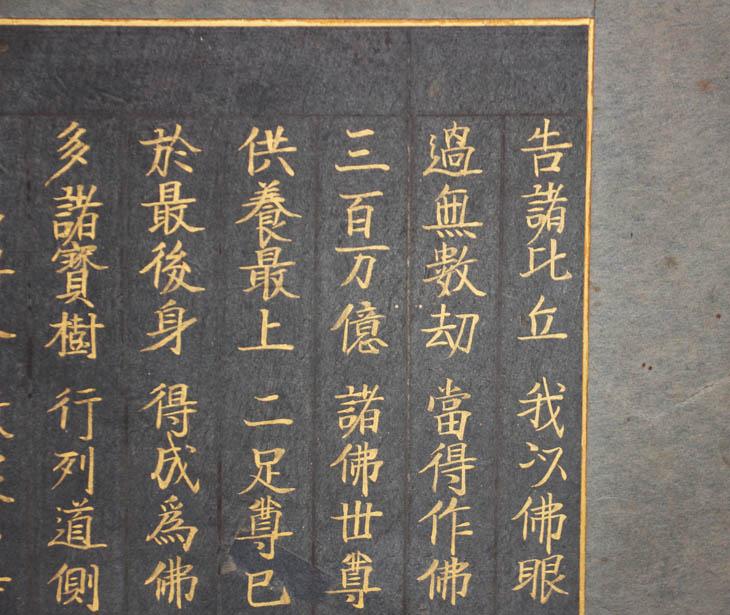 告諸比丘 我以佛眼
過無數劫 當得作佛
三百万億 諸佛世尊
供養最上 二足尊已
於最後身 得成為佛
多諸寶樹 行列道側